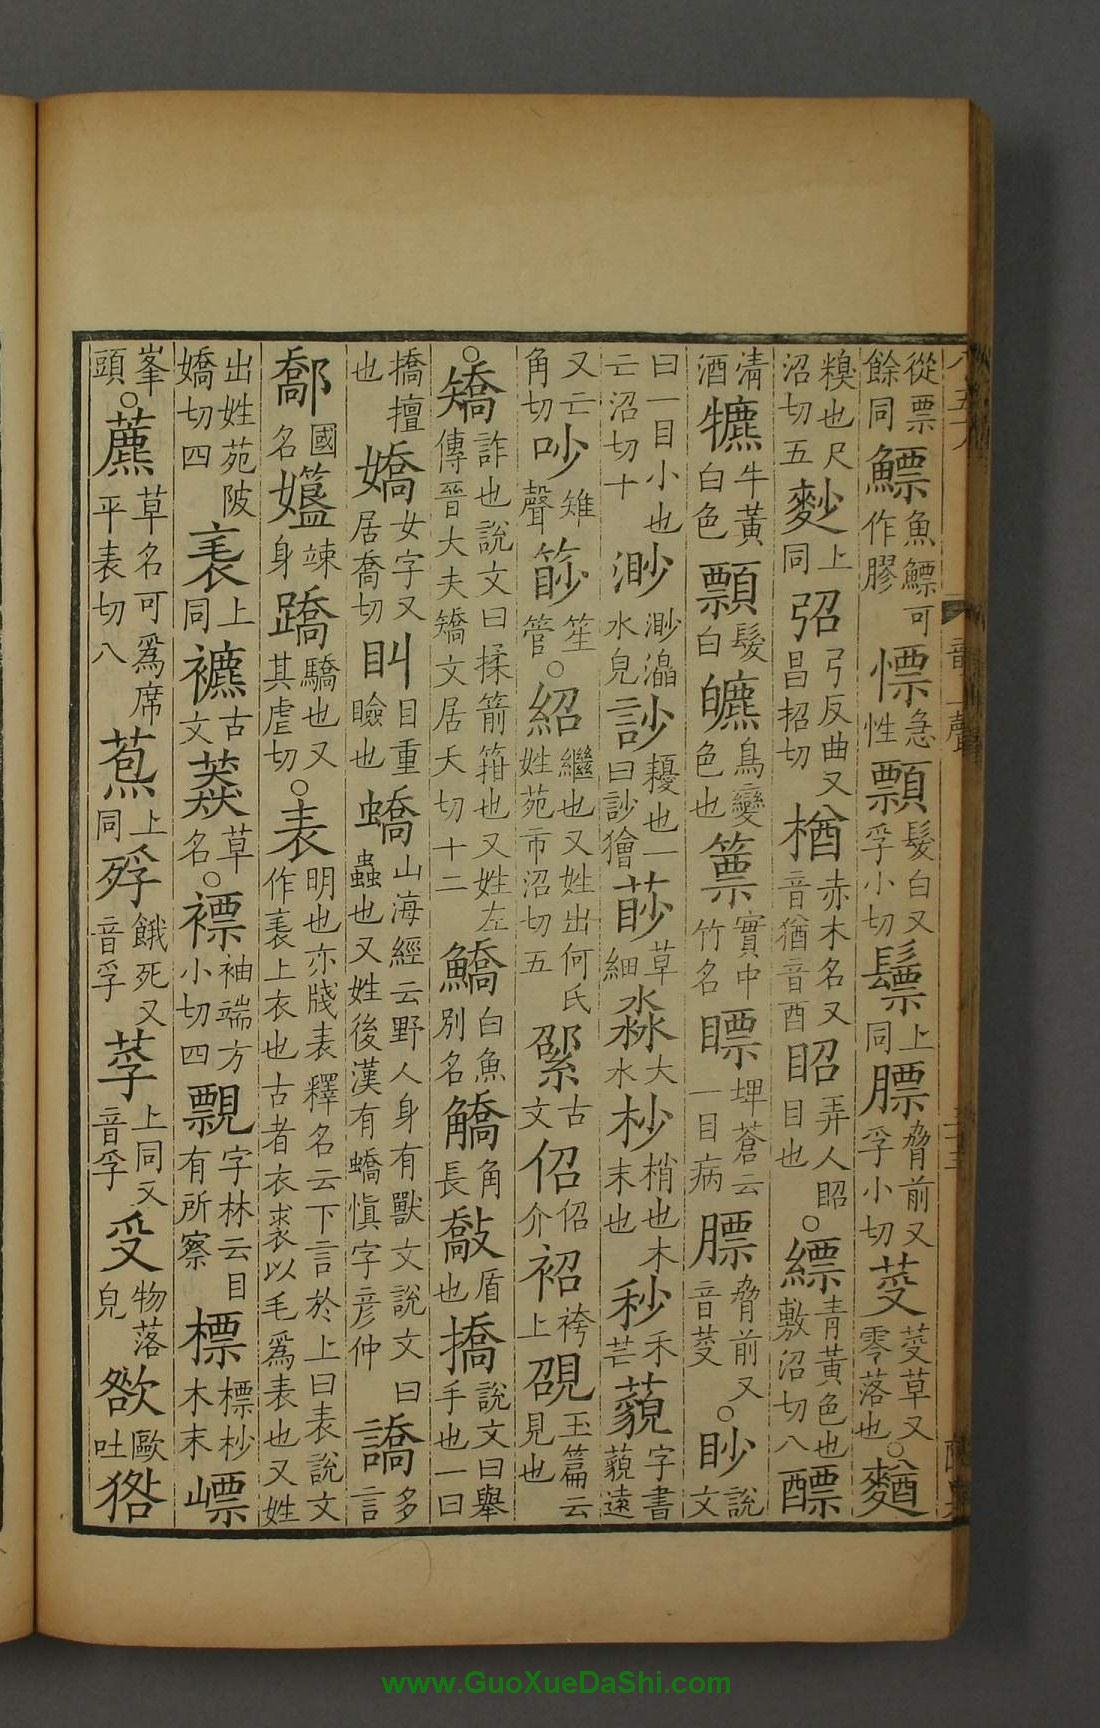 從票餘同鰾魚鰾可作膠慓急性顠髮白又孚小切䯽上同膘脅前又孚小切荽荽草又零落也○麵
糗也尺沼切五麨上同弨弓反曲又昌招切楢赤木名又音猶音酉眧弄人眧目也○縹青黃色也敷沼切八醥
清酒犥牛黃白色顠髮白皫鳥變色也篻竹名實中瞟埤蒼云一目病膘脅前又音荽○眇說文
曰一目小也亡沼切十渺渺㵿水皃訬擾也一曰訬獪莏草細淼大水杪梢也木末也秒禾芒藐字書藐遠
又亡角切吵雉聲篎笙管○紹繼也又姓出何氏姓苑市沼切五綤古文佋佋介袑袴上䂏玉篇云見也
○矯詐也說文曰揉箭箝也又姓左傳晉大夫矯文居夭切十二鱎白魚別名觼角長敽盾也撟說文曰舉手也一曰
撟擅也嬌女字又居喬切䀏目重瞼也蟜山海經云野人身有獸文說文曰蟲也又姓後漢有蟜慎字彥仲譑多言
鄗國名孂竦身蹻驕也又其虐切○表明也亦牋表釋名云下言於上曰表說文作𧘝上衣也古者衣裘以毛爲表也又姓
出姓苑陂嬌切四𧘝上同褾古文𦾑草名○褾袖端方小切四覭字林云目有所察標標杪木末嶛
峯頭○藨草名可爲席平表切八苞上同殍餓死又音孚莩上同又音孚受物落皃㰲歐吐㹾
www.GuoXueDaShi.com